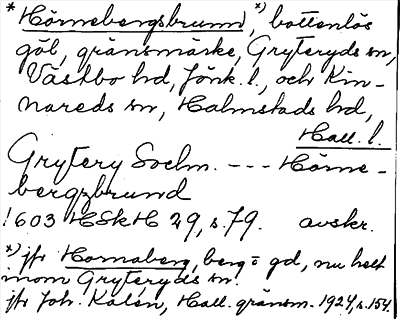 * Hörnebergsbrund, x) bottenlös
göl, gränsmärke, Gryteryds sn,
Västbo hd, Jönk. l., och Kin-
nareds sn, Halmstads hd,
Hall. l.
Grytery Sochn. --- Hörne-
bergzbrund
1603 HSkH 29, s. 79. avskr.
x) jfr Hornaberg, berg o gd, nu helt
inom Gryteryds sn.
jfr Joh. Kalén, Hall. gränsm. 1924, s. 154.